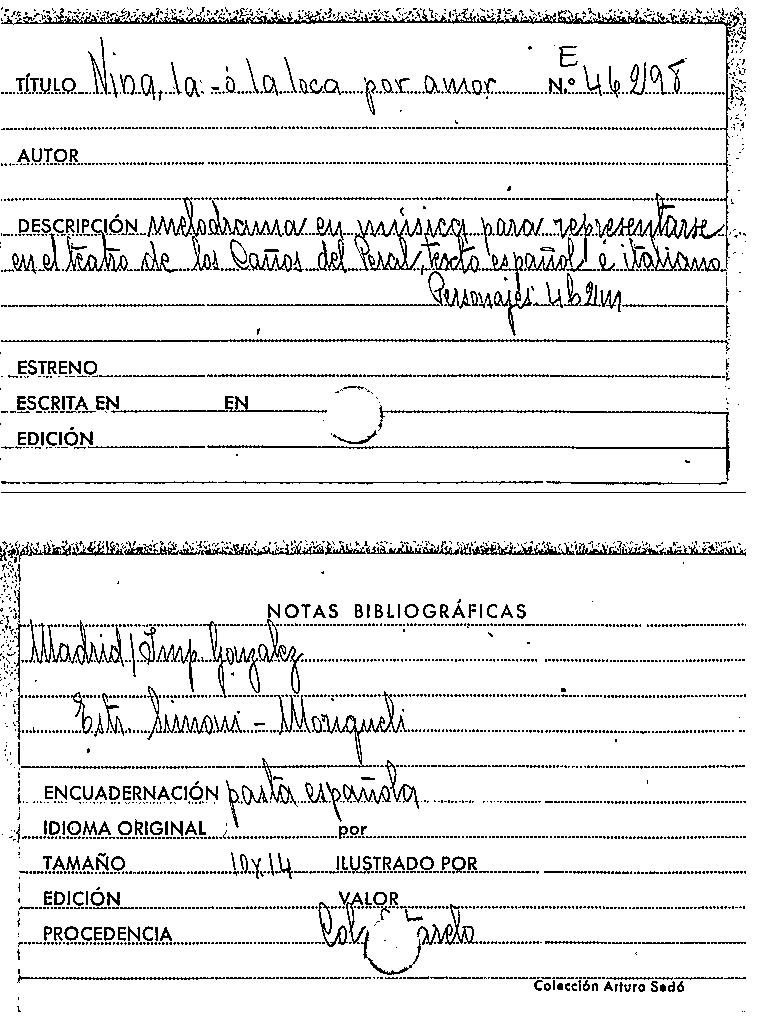 TÍTULO Nina, la - ó la loca por amor E N.º 462/98
AUTOR
DESCRIPCIÓN melodrama en música para representarse
en el teatro de los Caños del Peral, texto español é italiano
Personajes 4h 2m
ESTRENO
ESCRITA EN EN
EDICIÓN
NOTAS BIBLIOGRÁFICAS
Madrid / Imp Gonzalez
Estr. Simoni - Moriqueli
ENCUADERNACIÓN pasta española
IDIOMA ORIGINAL por
TAMAÑO 10x14 ILUSTRADO POR
EDICIÓN VALOR
PROCEDENCIA
Colección Arturo Sedó